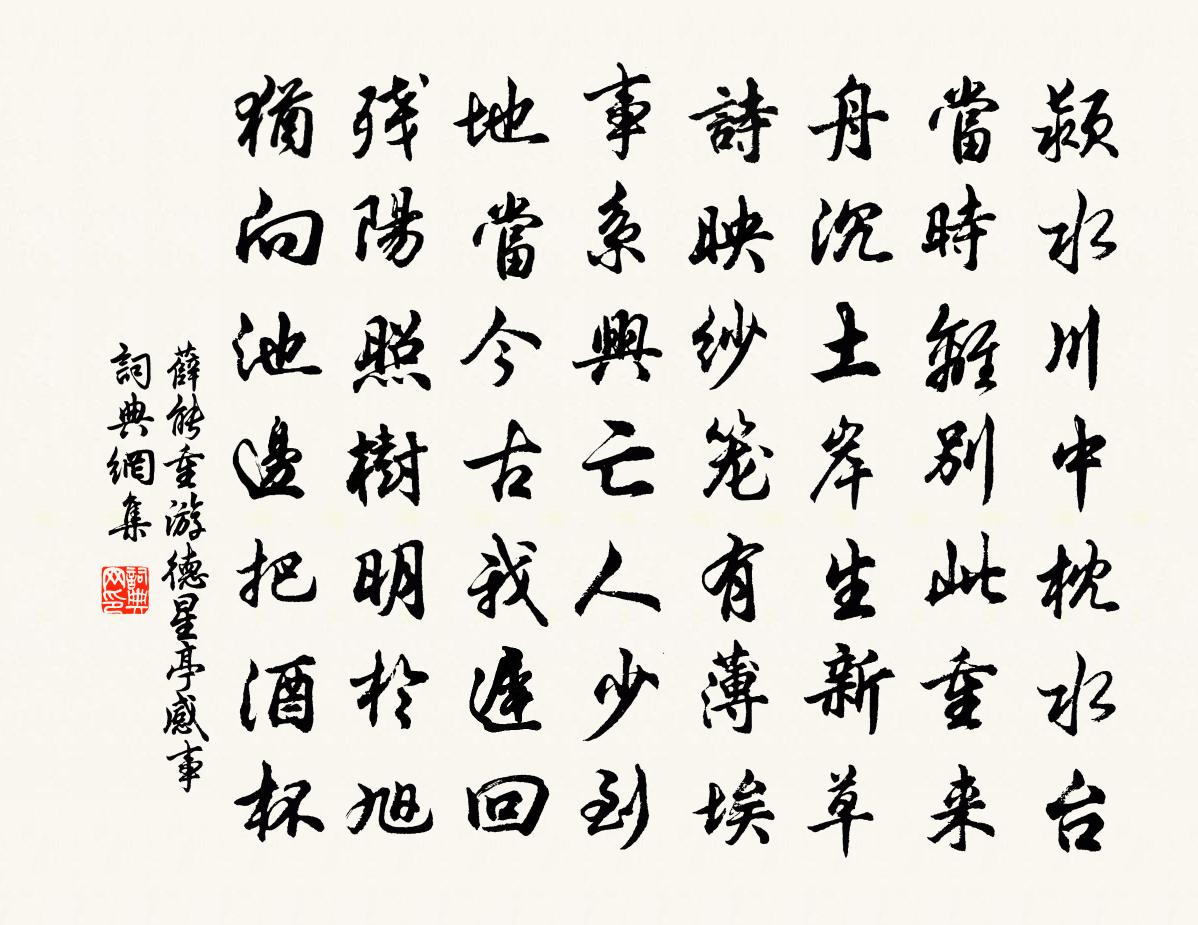 颍水川中枕水台
當時離別此重来
舟沉土岸生新草
詩映紗笼有薄埃
事系興亡人少到
地當今古我遲回
残陽照樹明於旭
猶向池邊把酒杯
薛能重游德星亭感事
詞典網集
詞典网印